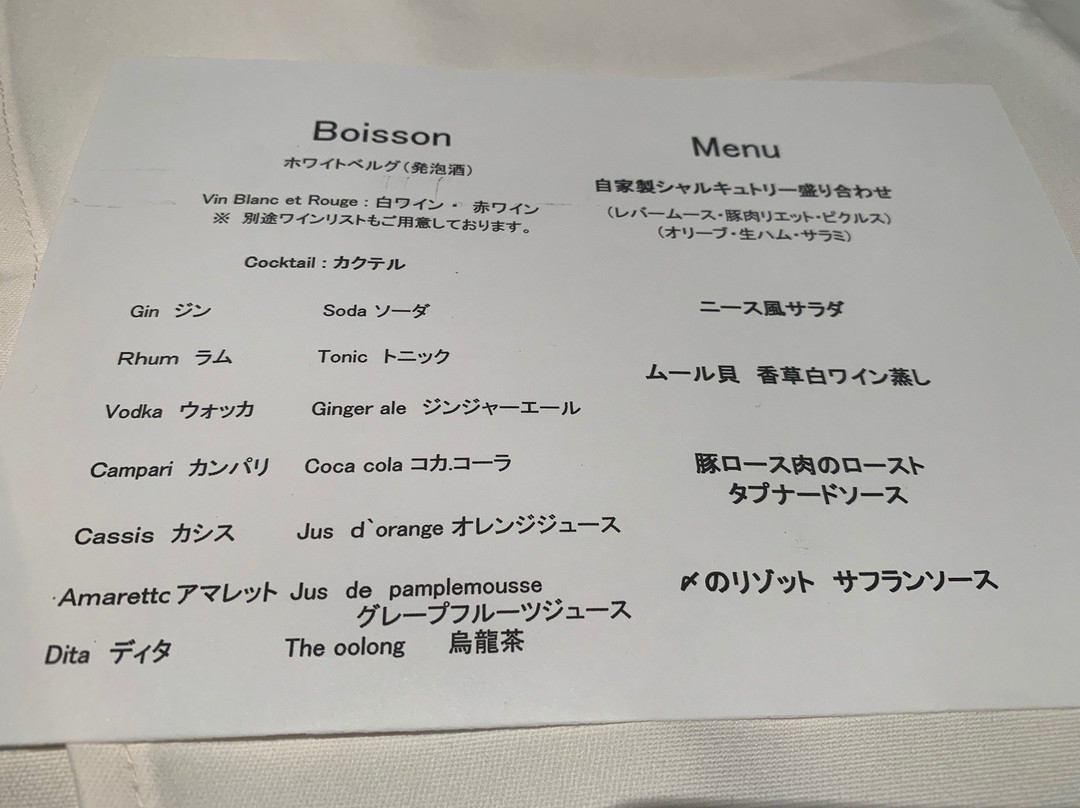 Boisson
ホワイトベルグ(発泡酒)
Vin Blanc et Rouge : 白ワイン ・ 赤ワイン
※ 別途ワインリストもご用意しております。
Cocktail : カクテル
Gin ジン
Soda ソーダ
Rhum ラム
Tonic トニック
Vodka ウォッカ
Ginger ale ジンジャーエール
Campari カンパリ
Coca cola コカ.コーラ
Cassis カシス
Jus d`orange オレンジジュース
Amarettc アマレット
Jus de pamplemousse
グレープフルーツジュース
Dita ディタ
The oolong 烏龍茶
Menu
自家製シャルキュトリー盛り合わせ
(レバームース・豚肉リエット・ピクルス)
(オリーブ・生ハム・サラミ)
ニース風サラダ
ムール貝 香草白ワイン蒸し
豚ロース肉のロースト
タプナードソース
〆のリゾット サフランソース